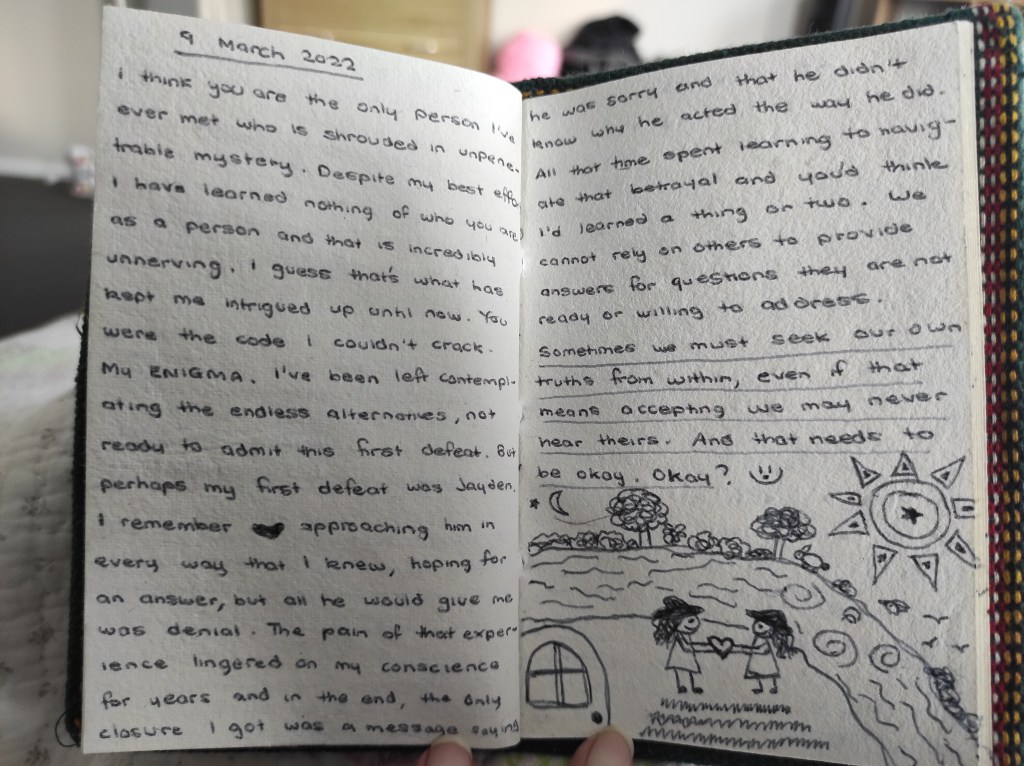 9 March 2022
I think you are the only person I've
ever met who is shrouded in unpene-
trable mystery. Despite my best effo
I have learned nothing of who you are
as a person and that is incredibly
unnerving. I guess that's what has
kept me intrigued up until now. You
were the code I couldn't crack.
My ENIGMA. I've been left contempl-
ating the endless alternatives, not
ready to admit this first defeat. But
perhaps my first defeat was Jayden.
I remember approaching him in
every way that I knew, hoping for
an answer, but all he would give me
was denial. The pain of that exper-
ience lingered on my conscience
for years and in the end, the only
closure I got was a message saying
he was sorry and that he didn't
know why he acted the way he did.
All that time spent learning to navig-
ate that betrayal and you'd think
I'd learned a thing or two. We
cannot rely on others to provide
answers for questions they are not
ready or willing to address.
Sometimes we must seek our own
truths from within, even if that
means accepting we may never
hear theirs. And that needs to
be okay. Okay?